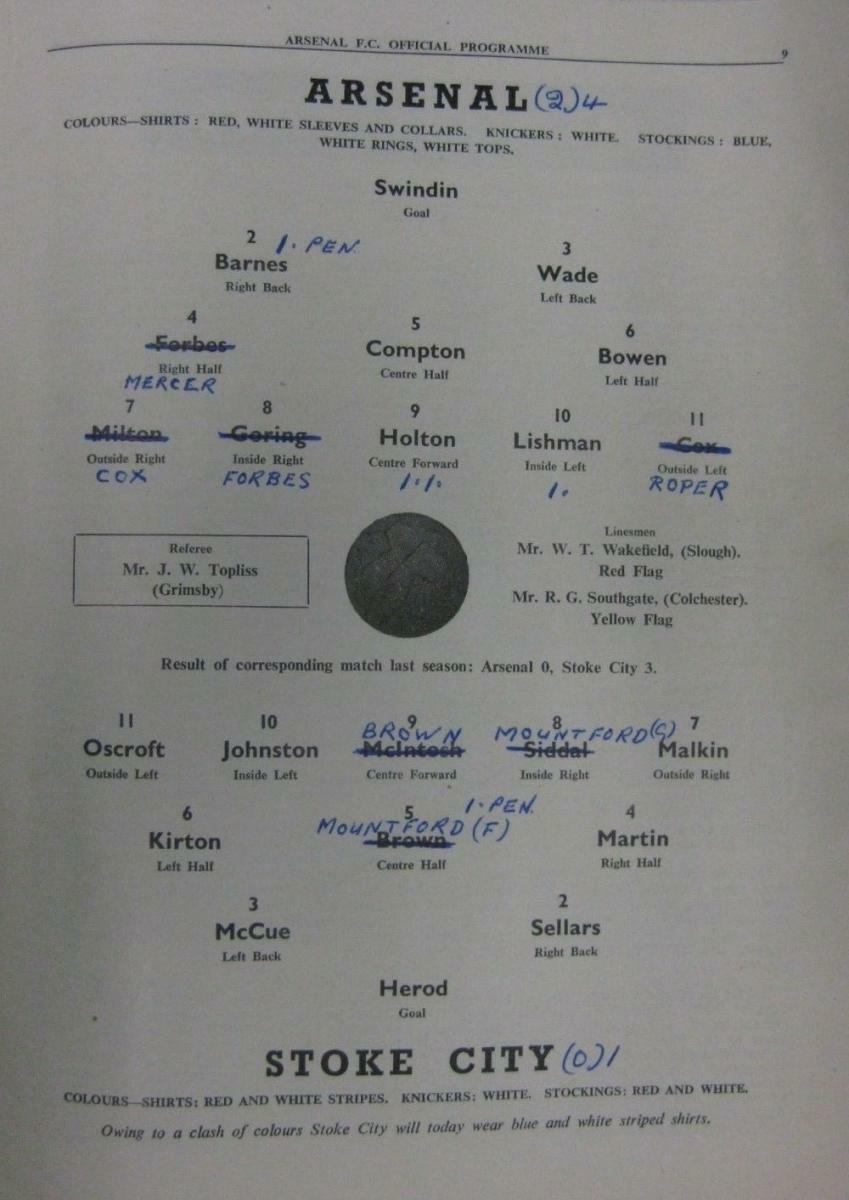 ARSENAL F.C. OFFICIAL PROGRAMME 9
ARSENAL (2) 4
COLOURS—SHIRTS: RED, WHITE SLEEVES AND COLLARS. KNICKERS: WHITE. STOCKINGS: BLUE,
WHITE RINGS, WHITE TOPS.
Swindin
Goal
2 1. PEN. 3
Barnes Wade
Right Back Left Back
4 5 6
Forbes Compton Bowen
Right Half Centre Half Left Half
MERCER
7 8 9 10 11
Milton Goring Holton Lishman Cox
Outside Right Inside Right Centre Forward Inside Left Outside Left
COX FORBES 1.1. 1. ROPER
Referee
Mr. J. W. Topliss
(Grimsby)
Linesmen
Mr. W. T. Wakefield, (Slough).
Red Flag
Mr. R. G. Southgate, (Colchester).
Yellow Flag
Result of corresponding match last season: Arsenal 0, Stoke City 3.
11 10 9 8 7
BROWN MOUNTFORD (G)
Oscroft Johnston McIntosh Siddal Malkin
Outside Left Inside Left Centre Forward Inside Right Outside Right
1. PEN.
6 5 4
MOUNTFORD (F)
Kirton Brown Martin
Left Half Centre Half Right Half
3 2
McCue Sellars
Left Back Right Back
Herod
Goal
STOKE CITY (0) 1
COLOURS—SHIRTS: RED AND WHITE STRIPES. KNICKERS: WHITE. STOCKINGS: RED AND WHITE.
Owing to a clash of colours Stoke City will today wear blue and white striped shirts.